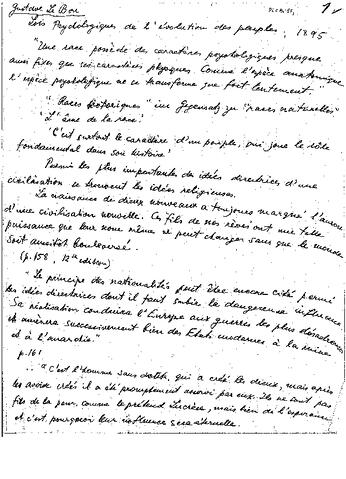 Gustave Le Bon
Lois Psychologiques de l'évolution des peuples, 1895
"Une race possède des caractères psychologiques presque
aussi fixes que ses caractères physiques. Comme l'espèce anatomique
l'espèce psychologique ne se transforme que fort lentement."
"Races historiques" im Gegensatz zu "races naturelles"
"L'âme de la race"
"C'est surtout le caractère d'un peuple, qui joue le rôle
fondamental dans son histoire"
Parmi les plus importantes des idées directrices d'une
civilisation se trouvent les idées religieuses.
La naissance de dieux nouveaux a toujours marqué l'aurore
d'une civilisation nouvelle. Ces fils de nos rêves ont une telle
puissance que leur nom même ne peut changer sans que le monde
soit aussitôt bouleversé.
(p. 158, 12th edition)
"Le principe des nationalités peut être encore cité parmi
les idées directrices dont il faut subir la dangereuse influence.
Sa réalisation conduira l'Europe aux guerres les plus désastreuses
et amènera successivement bien des Etats modernes à la ruine
et à l'anarchie."
p. 161
"C'est l'homme sans doute, qui a créé les dieux, mais après
les avoir créés il a été promptement asservi par eux. Ils ne sont pas
fils de la peur, comme le prétend Lucrèce, mais bien de l'espérance
et c'est pourquoi leur influence sera éternelle.
1